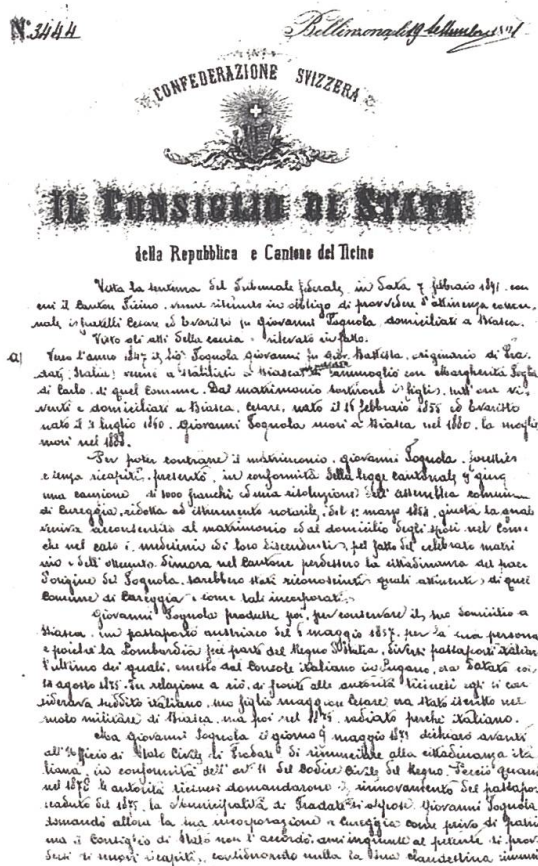 N.° 3444
Bellinzona, li 19 settembre 1891
CONFEDERAZIONE SVIZZERA
IL CONSIGLIO DI STATO
della Repubblica e Cantone del Ticino
Vista la sentenza del Tribunale federale, in data 7 febbraio 1891, con
cui il Canton Ticino venne ritenuto in obbligo di provvedere d'attinenza comu-
nale i fratelli Cesare ed Evaristo fu Giovanni Tognola, domiciliati a Biasca.
Visto gli atti della causa e rilevato in fatto.
a) Verso l'anno 1847 il Tognola Giovanni fu Gio. Battista, originario di Tra-
date, (Italia) venne a stabilirsi a Biasca ammogliò con Margherita
di Carlo, di quel Comune. Dal matrimonio sortirono i figli, tutt'ora vi-
venti e domiciliati a Biasca, Cesare, nato il 16 febbraio 1855 ed Evaristo
nato il 3 luglio 1860. Giovanni Tognola morì a Biasca nel 1880, la moglie
morì nel 1888.
Per poter contrarre il matrimonio, Giovanni Tognola, forestiero
e senza ricapiti, presentò, in conformità della legge cantonale
una cauzione di 1000 franchi ed una risoluzione dell'assemblea comunale
di Cureggia, ridotta ad istrumento notarile, del 1° marzo 1854, giusta la quale
veniva acconsentito al matrimonio ed al domicilio degli sposi nel Comune
che nel caso i medesimi ed i loro discendenti, pel fatto del celebrato matri
nio e dell' dimora nel Cantone perdessero la cittadinanza del paese
d'origine del Tognola, sarebbero stati riconosciuti quali attinenti di quel
Comune di Cureggia e come tali incorporati.
Giovanni Tognola produsse poi, per conservare il suo domicilio a
Biasca, un passaporto austriaco del 6 maggio 1857, per la sua persona
e poichè la Lombardia fece parte del Regno d'Italia, diversi passaporti italiani
l'ultimo dei quali, emesso dal Console italiano in Lugano, era datato
agosto 1875. In relazione a ciò, di fronte alle autorità ticinesi egli si con
siderava suddito italiano, suo figlio maggiore Cesare era stato iscritto nel
ruolo militare di Biasca, ma poi nel 1875 radiato perchè italiano.
Ma Giovanni Tognola il giorno 9 maggio 1871 dichiarò avanti
all'Ufficio di Stato Civile di Tradate di rinunciare alla cittadinanza ita
liana, in conformità dell'art. 11 del Codice Civile del Regno. Perciò quando
nel 1878 le autorità ticinesi domandarono il rinnovamento del passapor
scaduto del 1875, la Municipalità di Tradate si oppose. Giovanni Tognola
domandò allora la sua incorporazione a Cureggia come privo di patria
ma il Consiglio di Stato non l'accordò, anzi ingiunse al petente di prov-
dersi di nuovi ricapiti,